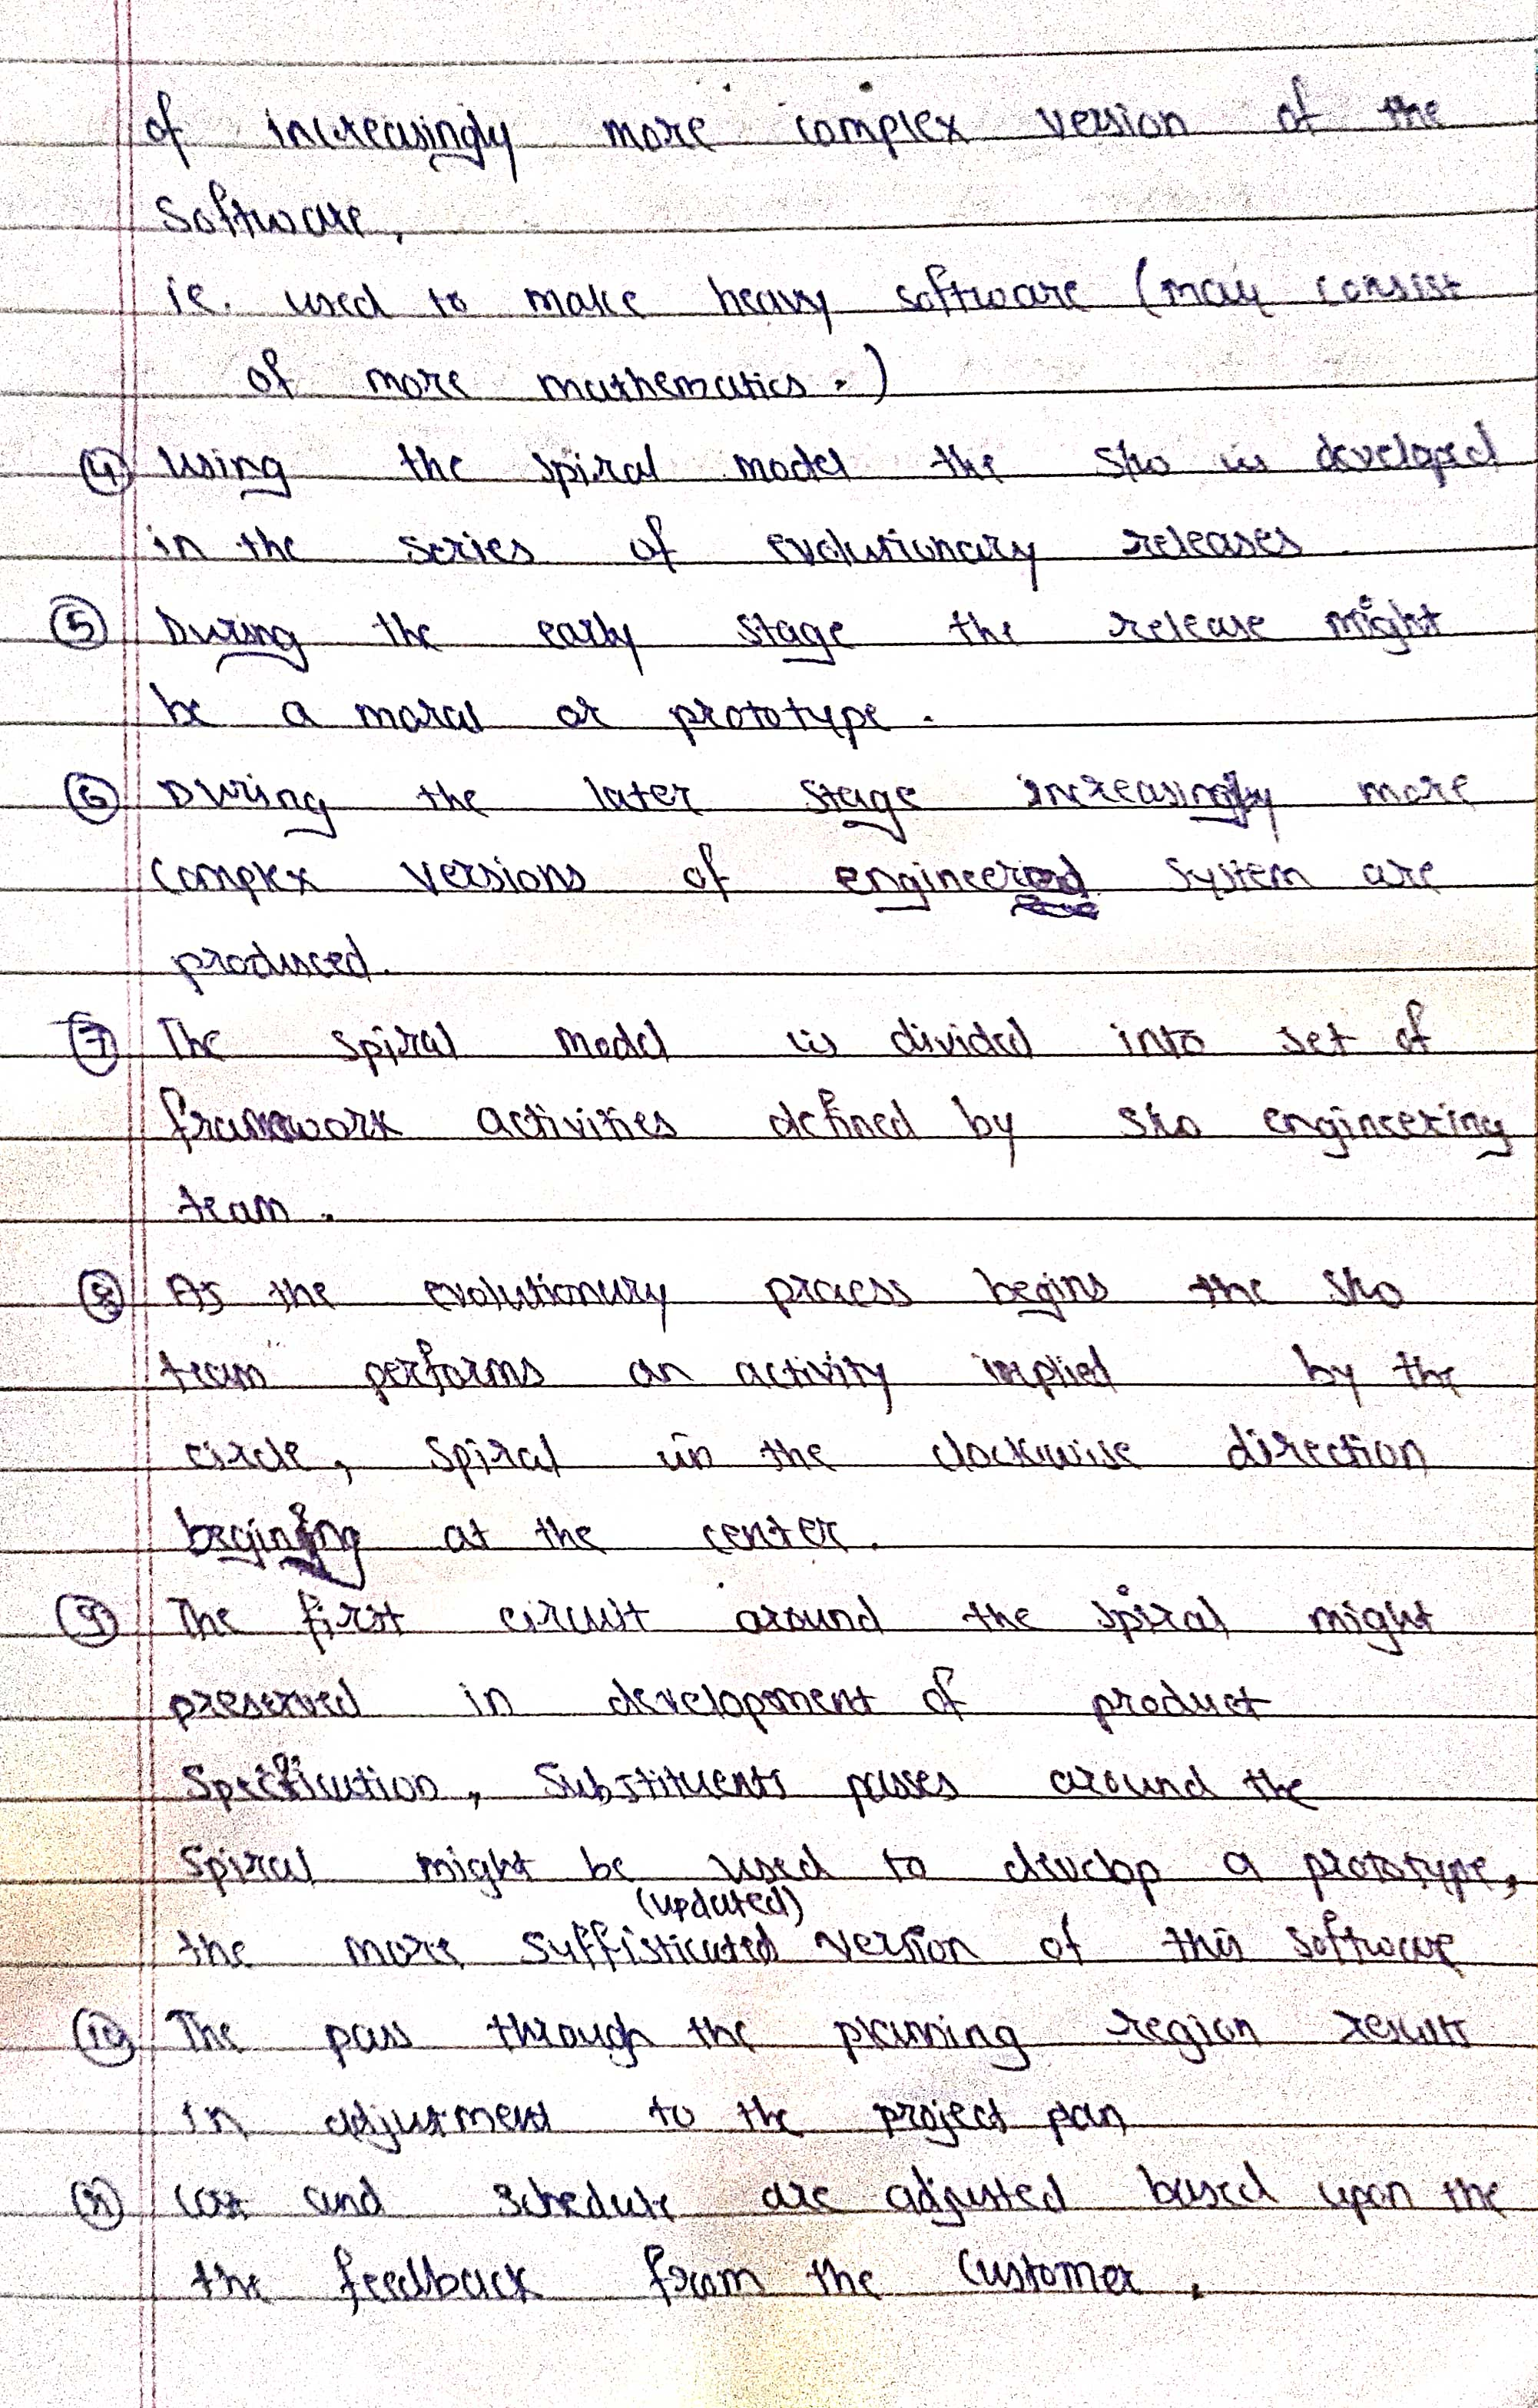 of increasingly more complex version of the
Software,
ie. used to make heavy software (may consist
of more mathematics.)
④ Using the spiral model the s/w is developed
in the series of evolutionary releases
⑤ During the early stage the release might
be a moral or prototype.
⑥ During the later stage increasingly more
complex versions of engineered system are
produced.
⑦ The spiral model is divided into set of
framework activities defined by s/w engineering
team.
⑧ As the evolutionary process begins the s/w
team performs an activity implied by the
circle, spiral in the clockwise direction
begining at the center.
⑨ The first circuit around the spiral might
preserved in development of product
Specification, Substituents passes around the
Spiral might be used to develop a prototype,
(updated)
the more suffisticated version of this software
⑩ The pass through the planning region result
in adjustment to the project plan
⑪ Cost and schedule are adjusted based upon the
the feedback from the Customer.